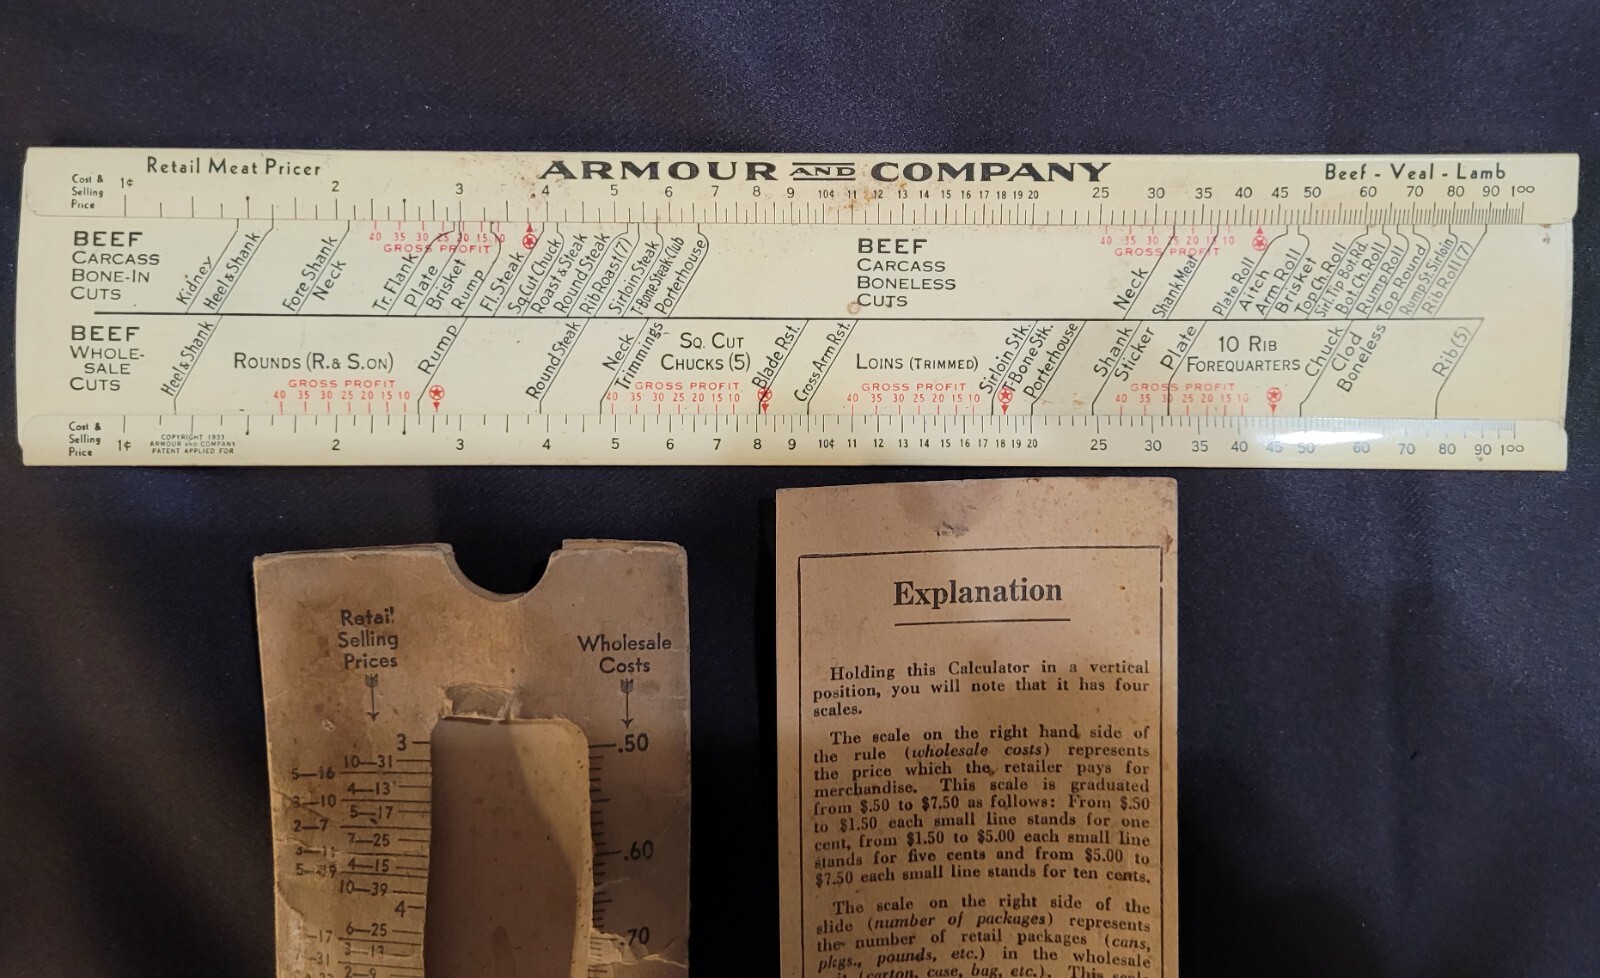 Retail Meat Pricer
ARMOUR AND COMPANY
Beef - Veal - Lamb
Cost &
Selling
Price
1¢ 2 3 4 5 6 7 8 9 10¢ 11 12 13 14 15 16 17 18 19 20 25 30 35 40 45 50 60 70 80 90 1⁰⁰
BEEF
CARCASS
BONE-IN
CUTS
Kidney
Heel & Shank
Fore Shank
Neck
40 35 30 25 20 15 10
GROSS PROFIT
Tr. Flank
Plate
Brisket
Rump
Fl. Steak
Sq. Cut Chuck
Roast & Steak
Round Steak
Rib Roast (7)
Sirloin Steak
T-Bone Steak Club
Porterhouse
BEEF
CARCASS
BONELESS
CUTS
40 35 30 25 20 15 10
GROSS PROFIT
Neck
Shank Meat
Plate Roll
Aitch
Arm Roll
Brisket
Top Ch. Roll
Sirl. Tip Bot. Rd.
Bot. Ch. Roll
Rump Roll
Top Round
Rump St. Sirloin
Rib Roll (7)
BEEF
WHOLE-
SALE
CUTS
Heel & Shank
ROUNDS (R. & S. ON)
GROSS PROFIT
40 35 30 25 20 15 10
Rump
Round Steak
Neck
Trimmings
SQ. CUT
CHUCKS (5)
GROSS PROFIT
40 35 30 25 20 15 10
Blade Rst.
Cross Arm Rst.
LOINS (TRIMMED)
GROSS PROFIT
40 35 30 25 20 15 10
Sirloin Stk.
T-Bone Stk.
Porterhouse
Shank
Sticker
Plate
10 RIB
FOREQUARTERS
GROSS PROFIT
40 35 30 25 20 15 10
Chuck
Clod
Boneless
Rib (5)
Cost &
Selling
Price
1¢ 2 3 4 5 6 7 8 9 10¢ 11 12 13 14 15 16 17 18 19 20 25 30 35 40 45 50 60 70 80 90 1⁰⁰
COPYRIGHT 1933
ARMOUR AND COMPANY
PATENT APPLIED FOR
Retail
Selling
Prices
Wholesale
Costs
3
.50
10—31
5—16
4—13
3—10
5—17
2—7
7—25
3—11
.60
4—15
5—19
10—39
4
6—25
.70
3—13
2—9
Explanation
Holding this Calculator in a vertical
position, you will note that it has four
scales.
The scale on the right hand side of
the rule (wholesale costs) represents
the price which the retailer pays for
merchandise. This scale is graduated
from $.50 to $7.50 as follows: From $.50
to $1.50 each small line stands for one
cent, from $1.50 to $5.00 each small line
stands for five cents and from $5.00 to
$7.50 each small line stands for ten cents.
The scale on the right side of the
slide (number of packages) represents
the number of retail packages (cans,
pkgs., pounds, etc.) in the wholesale
(carton, case, bag, etc.). This